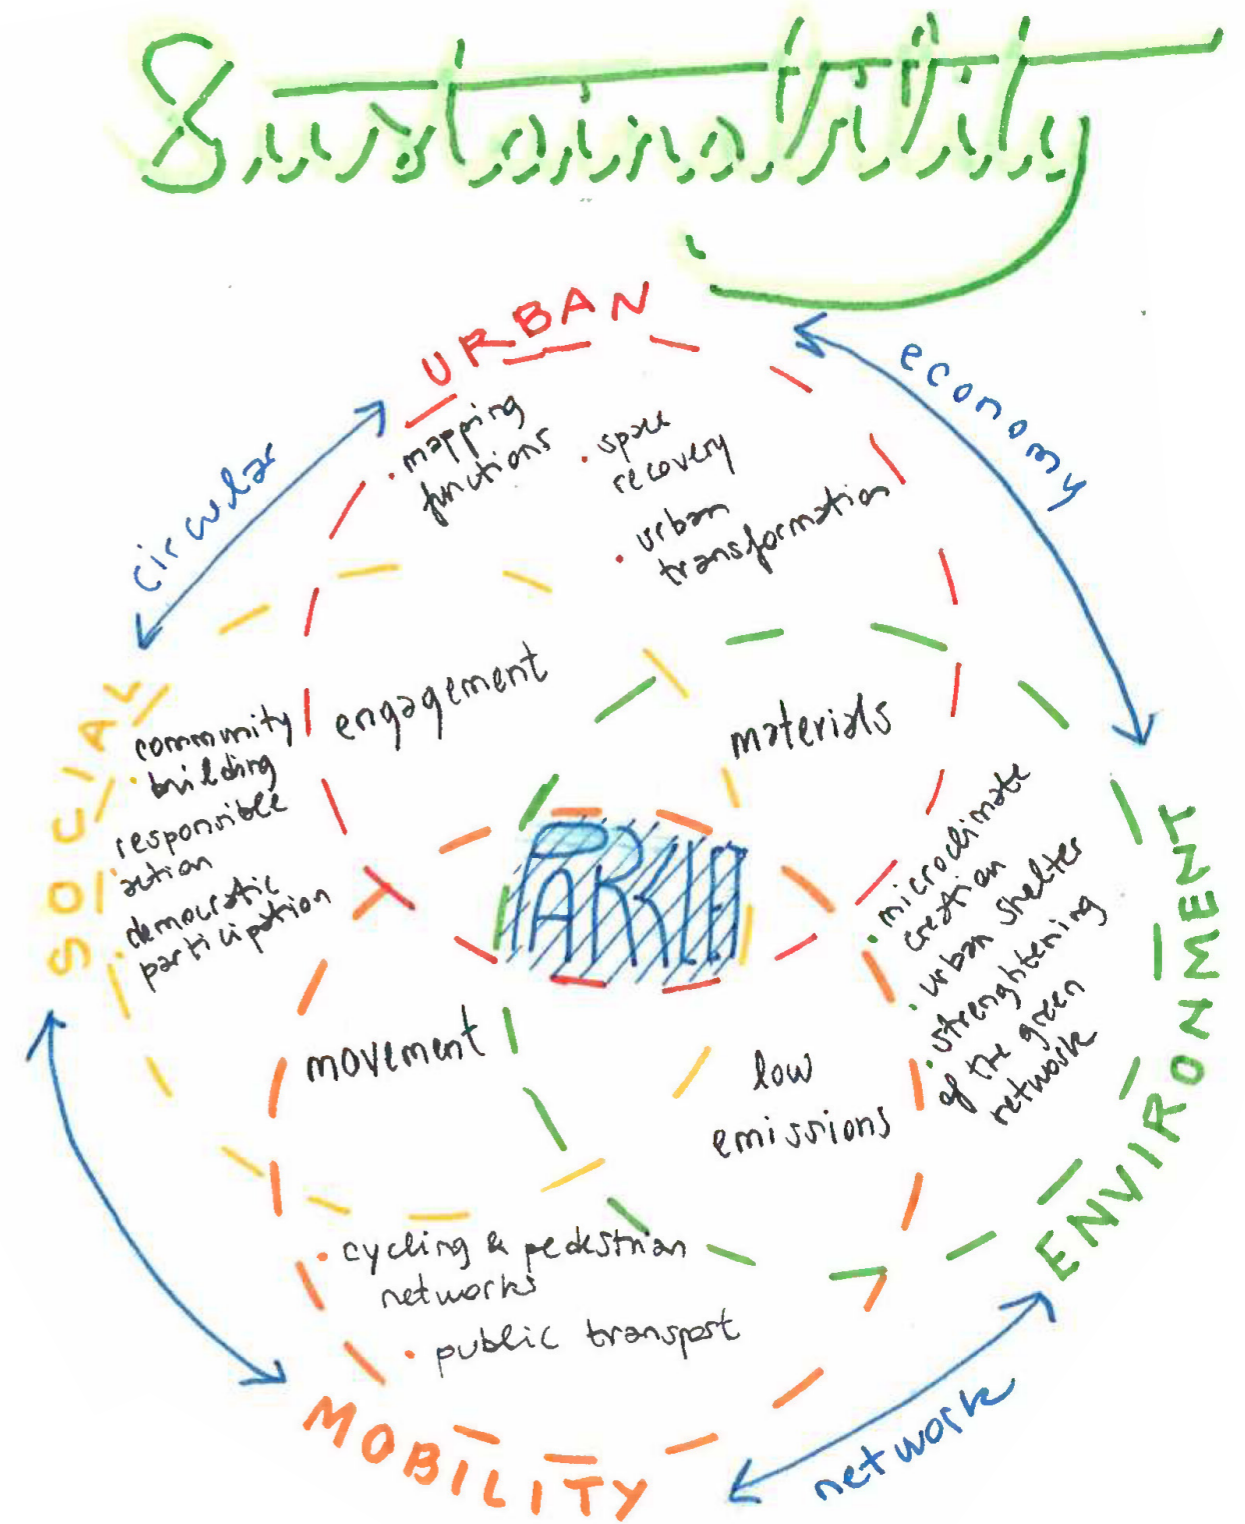 Sustainability
URBAN
circular
economy
• mapping
functions
• space
recovery
• urban
transformation
SOCIAL
community
• building
responsible
• action
• democratic
participation
engagement
materials
PARKLET
• microclimate
creation
• urban shelter
• strenghtening
of the green
network
ENVIRONMENT
movement
low
emissions
• cycling & pedestrian
networks
• public transport
MOBILITY
network